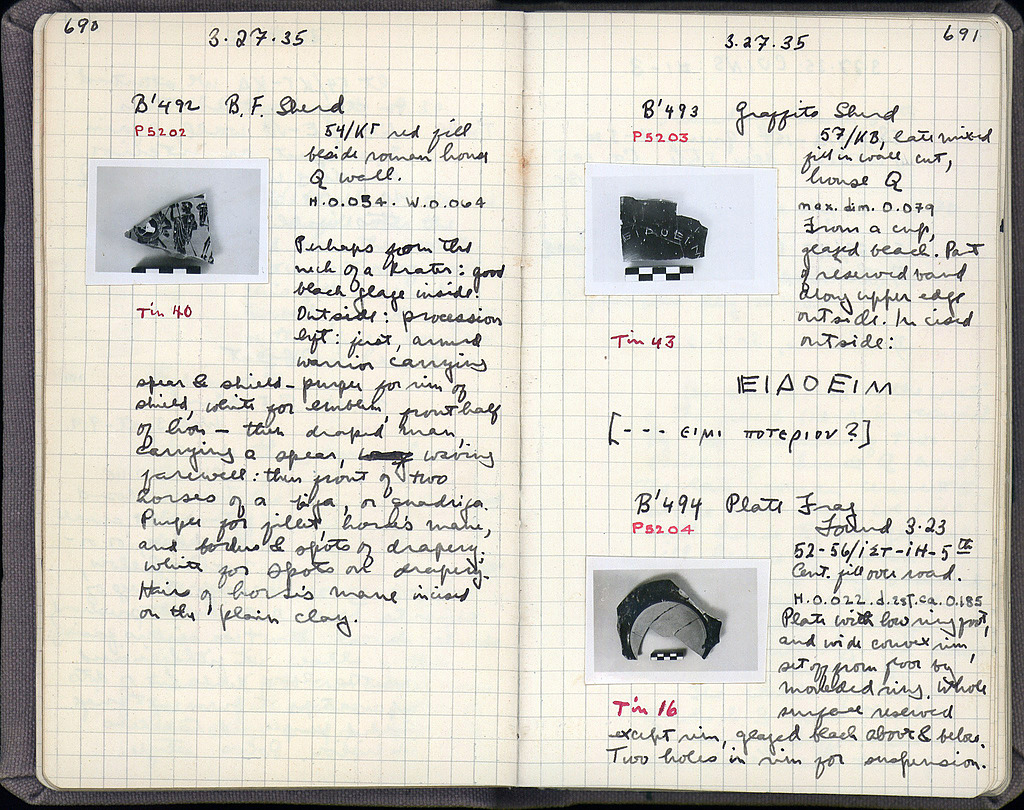 690
3·27·35
B'492 B.F. Sherd
P5202
54/ΚΓ red fill
beside roman house
Q wall.
H.0.054. W.0.064
Perhaps from the
neck of a krater: good
black glaze inside.
Outside: procession
left: first, armed
warrior carrying
Tin 40
spear & shield – purple for rim of
shield, white for emblem, front half
of lion – then draped man,
carrying a spear, waving
farewell: then front of two
horses of a biga, or quadriga.
Purple for fillet, horse's mane,
and borders & spots of drapery;
white for spots on drapery.
Hairs of horse's mane incised
on the plain clay.
691
3·27·35
B'493 Graffito Sherd
P5203
57/ΚΒ, late mixed
fill in wall cut,
house Q
max. dim. 0.079
From a cup,
glazed black. Part
of reserved band
along upper edge
outside. Incised
outside:
Tin 43
ΕΙΔΟΕΙΛ
[--- ειμι ποτεριον?]
B'494 Plate Frag
P5204
Found 3·23
52-56/ΙΣΤ-ΙΗ-5th
Cent. fill over road.
H.0.022. d.est.ca.0.185
Plate with low ring foot,
and wide convex rim,
set off from floor by
moulded ring. Whole
surface reserved
Tin 16
except rim, glazed black above & below.
Two holes in rim for suspension.